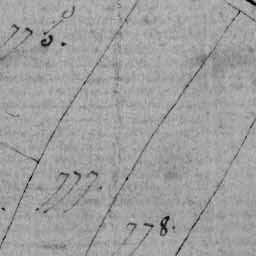 778.
777.
778.